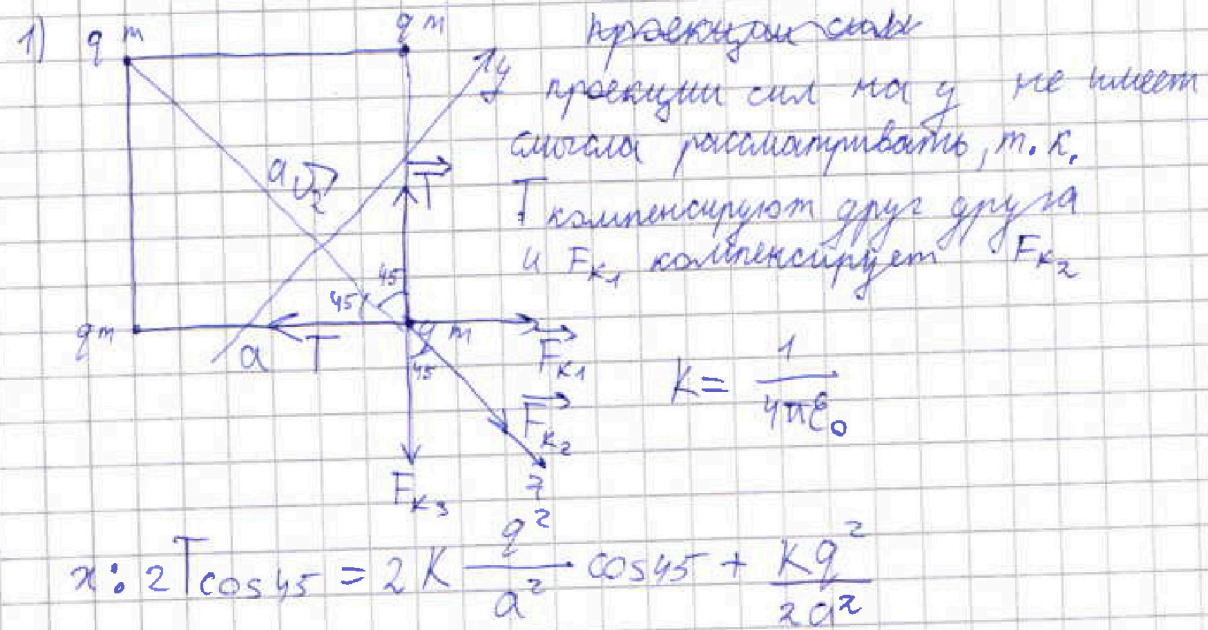 1) q m q m
проекции силы
y
проекции сил на y не имеет
смысла рассматривать, т.к.
a√2 T
T компенсируют друг друга
и Fк1 компенсирует Fк2
45 45
q m q m
a T Fк1
45
K = 1/4πε0
Fк2
Fк3
x: 2Tcos45 = 2K q²/a² cos45 + Kq²/2a²